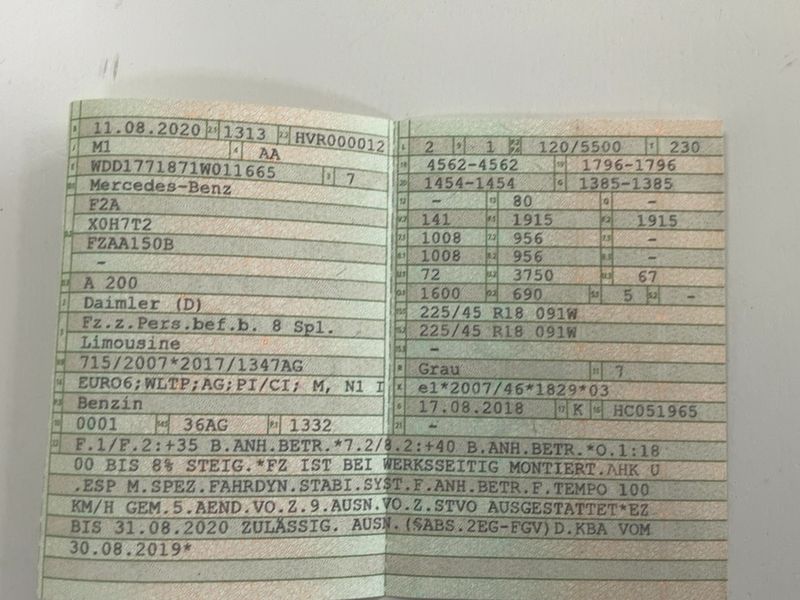 11.08.2020 1313 HVR000012
M1 AA
WDD1771871W011665 7
Mercedes-Benz
F2A
X0H7T2
FZAA150B
-
A 200
Daimler (D)
Fz.z.Pers.bef.b. 8 Spl.
Limousine
715/2007*2017/1347AG
EURO6;WLTP;AG;PI/CI; M, N1 I
Benzin
0001 36AG 1332
2 1 120/5500 230
4562-4562 1796-1796
1454-1454 1385-1385
- 80 -
141 1915 1915
1008 956 -
1008 956 -
72 3750 67
1600 690 5 -
225/45 R18 091W
225/45 R18 091W
-
Grau 7
e1*2007/46*1829*03
17.08.2018 K HC051965
-
F.1/F.2:+35 B.ANH.BETR.*7.2/8.2:+40 B.ANH.BETR.*O.1:18
00 BIS 8% STEIG.*FZ IST BEI WERKSSEITIG MONTIERT.AHK U
.ESP M.SPEZ.FAHRDYN.STABI.SYST.F.ANH.BETR.F.TEMPO 100
KM/H GEM.5.AEND.VO.Z.9.AUSN.VO.Z.STVO AUSGESTATTET*EZ
BIS 31.08.2020 ZULÄSSIG. AUSN.(§ABS.2EG-FGV)D.KBA VOM
30.08.2019*